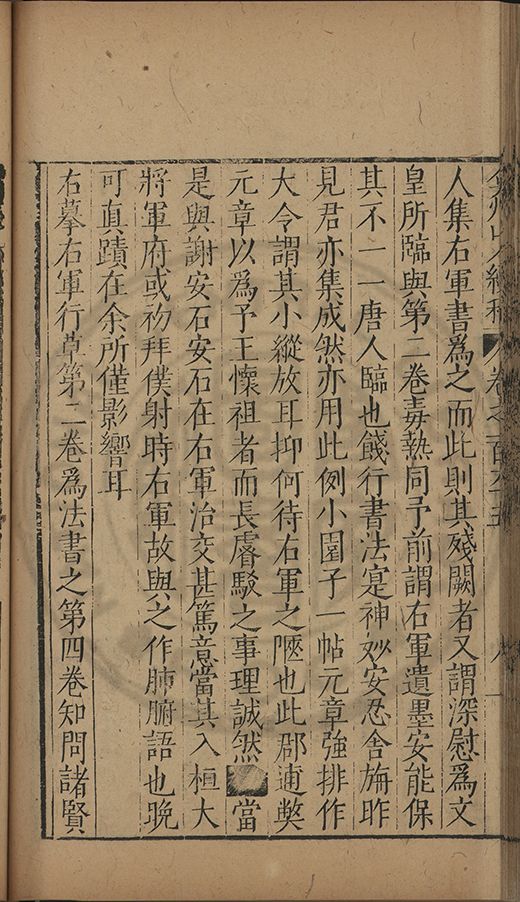 人集右軍書為之而此則其殘闕者又謂深慰為文
皇所臨與第二卷毒熱同予前謂右軍遺墨安能保
其不一一唐人臨也餞行書法寔神妙安忍舍旃昨
見君亦集成然亦用此例小園子一帖元章強排作
大令謂其小縱放耳抑何待右軍之陿也此郡逋獘
元章以為予王懷祖者而長睿駁之事理誠然 當
是與謝安石安石在右軍治交甚篤意當其入桓大
將軍府或初拜僕射時右軍故與之作肺腑語也晚
可真蹟在余所僅影響耳
右摹右軍行草第二卷為法書之第四卷知問諸賢